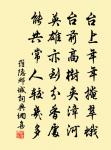 台上年年掩翠娥
台前高樹夾漳河
英雄亦到分香處
能共常人較幾多
羅隱鄴城詞典網喜